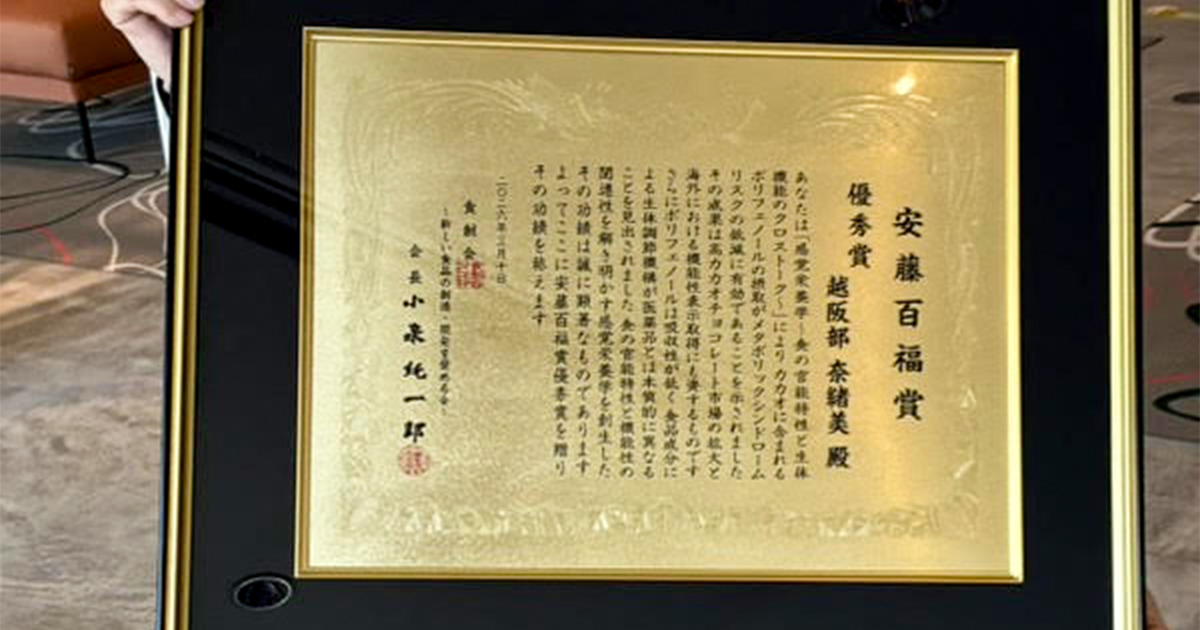 安藤百福賞
優秀賞
越阪部 奈緒美 殿
あなたは「感覚栄養学～食の官能特性と生体
機能のクロストーク～」によりカカオに含まれる
ポリフェノールの摂取がメタボリックシンドローム
リスクの低減に有効であることを示されました
その成果は高カカオチョコレート市場の拡大と
海外における機能性表示取得にも資するものです
さらにポリフェノールは吸収性が低く食品成分に
よる生体調節機構が医薬品とは本質的に異なる
ことを見出されました 食の官能特性と機能性の
関連性を解き明かす感覚栄養学を創生した
その功績は誠に顕著なものであります
よってここに安藤百福賞優秀賞を贈り
その功績を称えます
二〇二六年三月十日
食創会
～新しい食品の創造・開発を奨める会～
会長 小泉純一郎